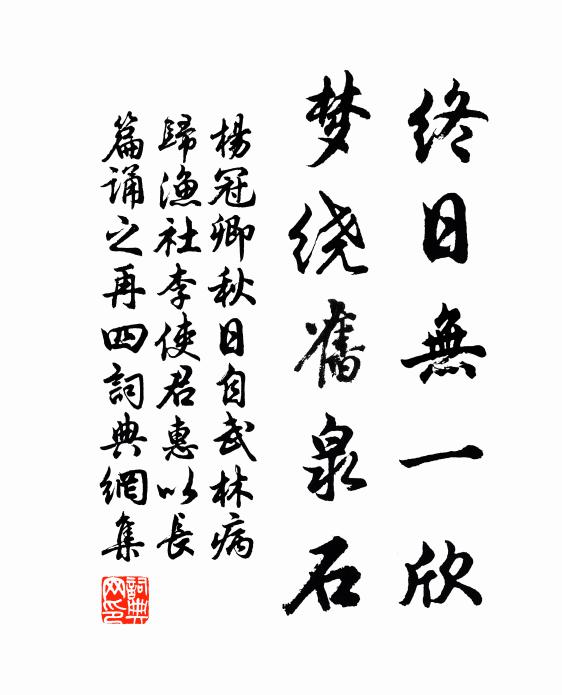 终日無一欣
梦绕舊泉石
楊冠卿秋日自武林病
歸漁社李使君惠以長
篇诵之再四詞典網集
詞典网印